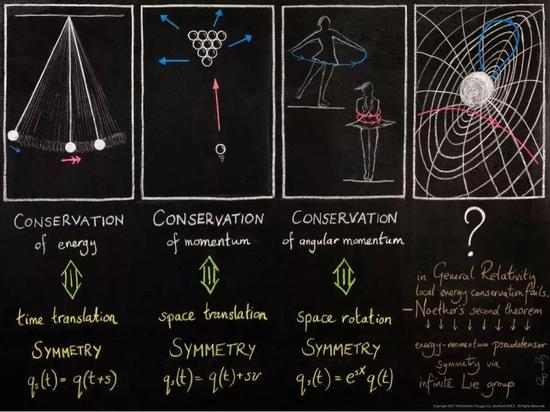 CONSERVATION
of energy
time translation
SYMMETRY
qₛ(t) = q(t+s)
CONSERVATION
of momentum
space translation
SYMMETRY
qₛ(t) = q(t)+sv
CONSERVATION
of angular momentum
space rotation
SYMMETRY
qₛ(t) = eˢˣ q(t)
?
in General Relativity
local energy conservation fails.
— Noether's second theorem
energy-momentum pseudotensor
symmetry via
infinite Lie group